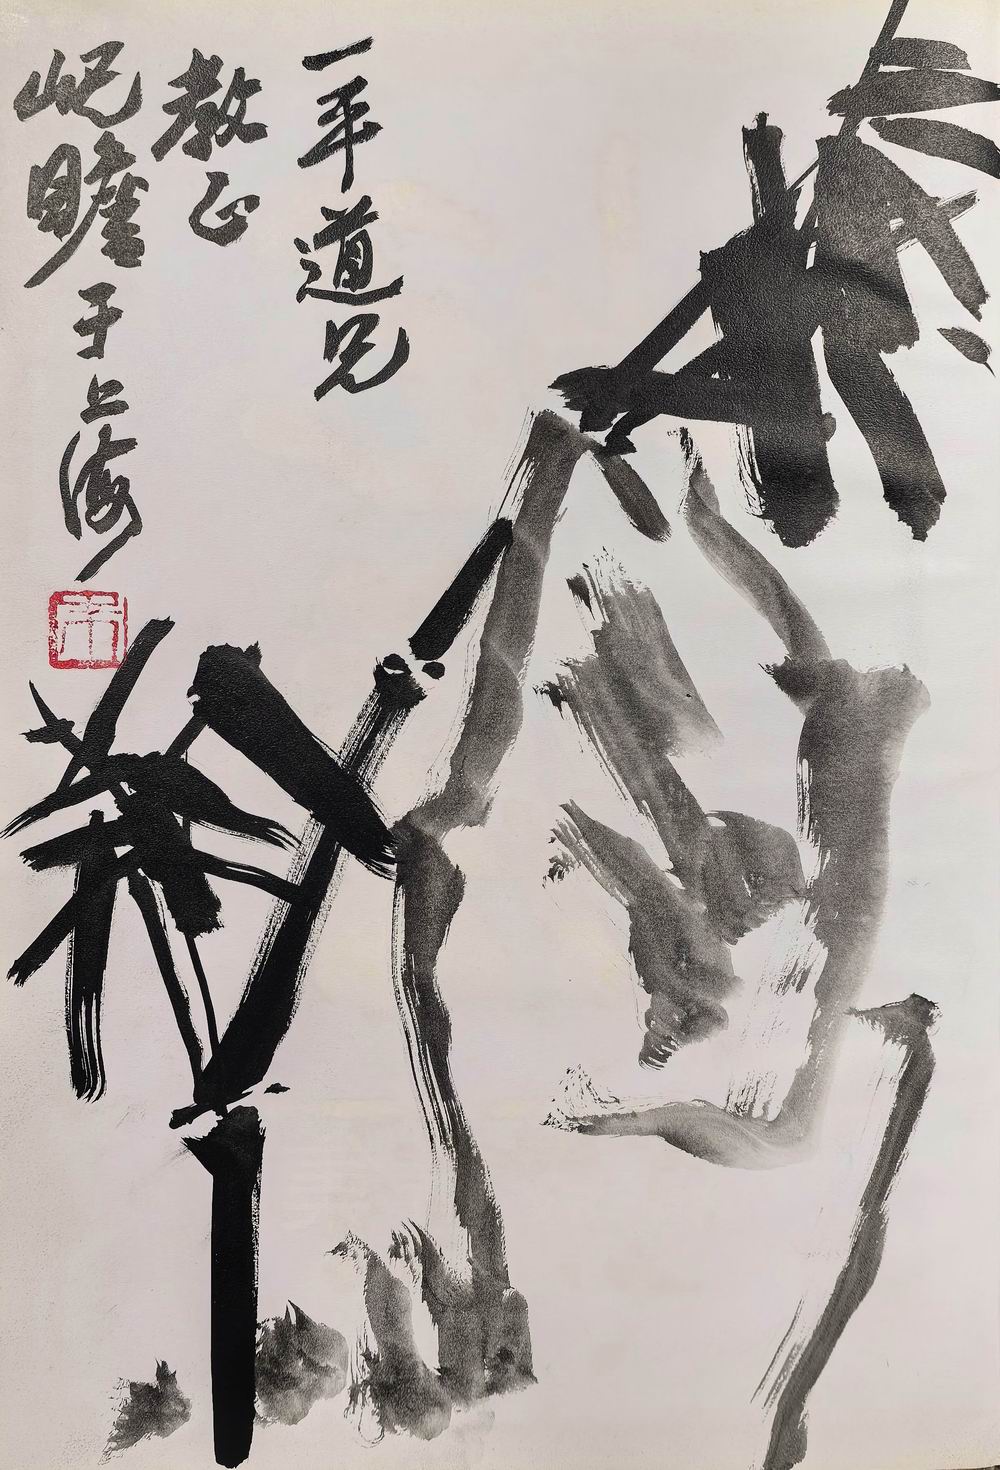 一平道兄
教正
屺瞻于上海